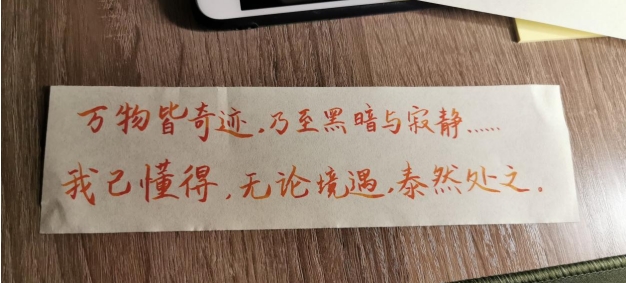 万物皆奇迹，乃至黑暗与寂静……
我已懂得，无论境遇，泰然处之。